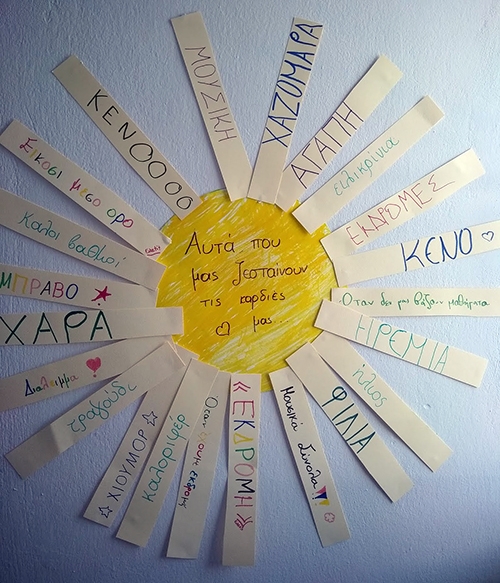 Αυτά που
μας ζεσταίνουν
τις καρδιές
μας...
ΜΟΥΣΙΚΗ
ΧΑΖΟΜΑΡΑ
ΑΓΑΠΗ
ειλικρίνια
ΕΚΔΡΟΜΕΣ
ΚΕΝΟ
Οταν δεν μας βάζουν μαθήματα
ΗΡΕΜΙΑ
ήλιος
ΦΙΛΙΑ
Μουσικά Σύνολα!!!
«ΕΚΔΡΟΜΗ»
Οταν έχουμε εκδρομες
καλοριφέρ
ΧΙΟΥΜΟΡ
τραγούδι
Διάλειμμα
ΧΑΡΑ
ΜΠΡΑΒΟ
Καλοί βαθμοί
Είκοσι μέσο όρο
ΚΕΝΟΟΟΟ